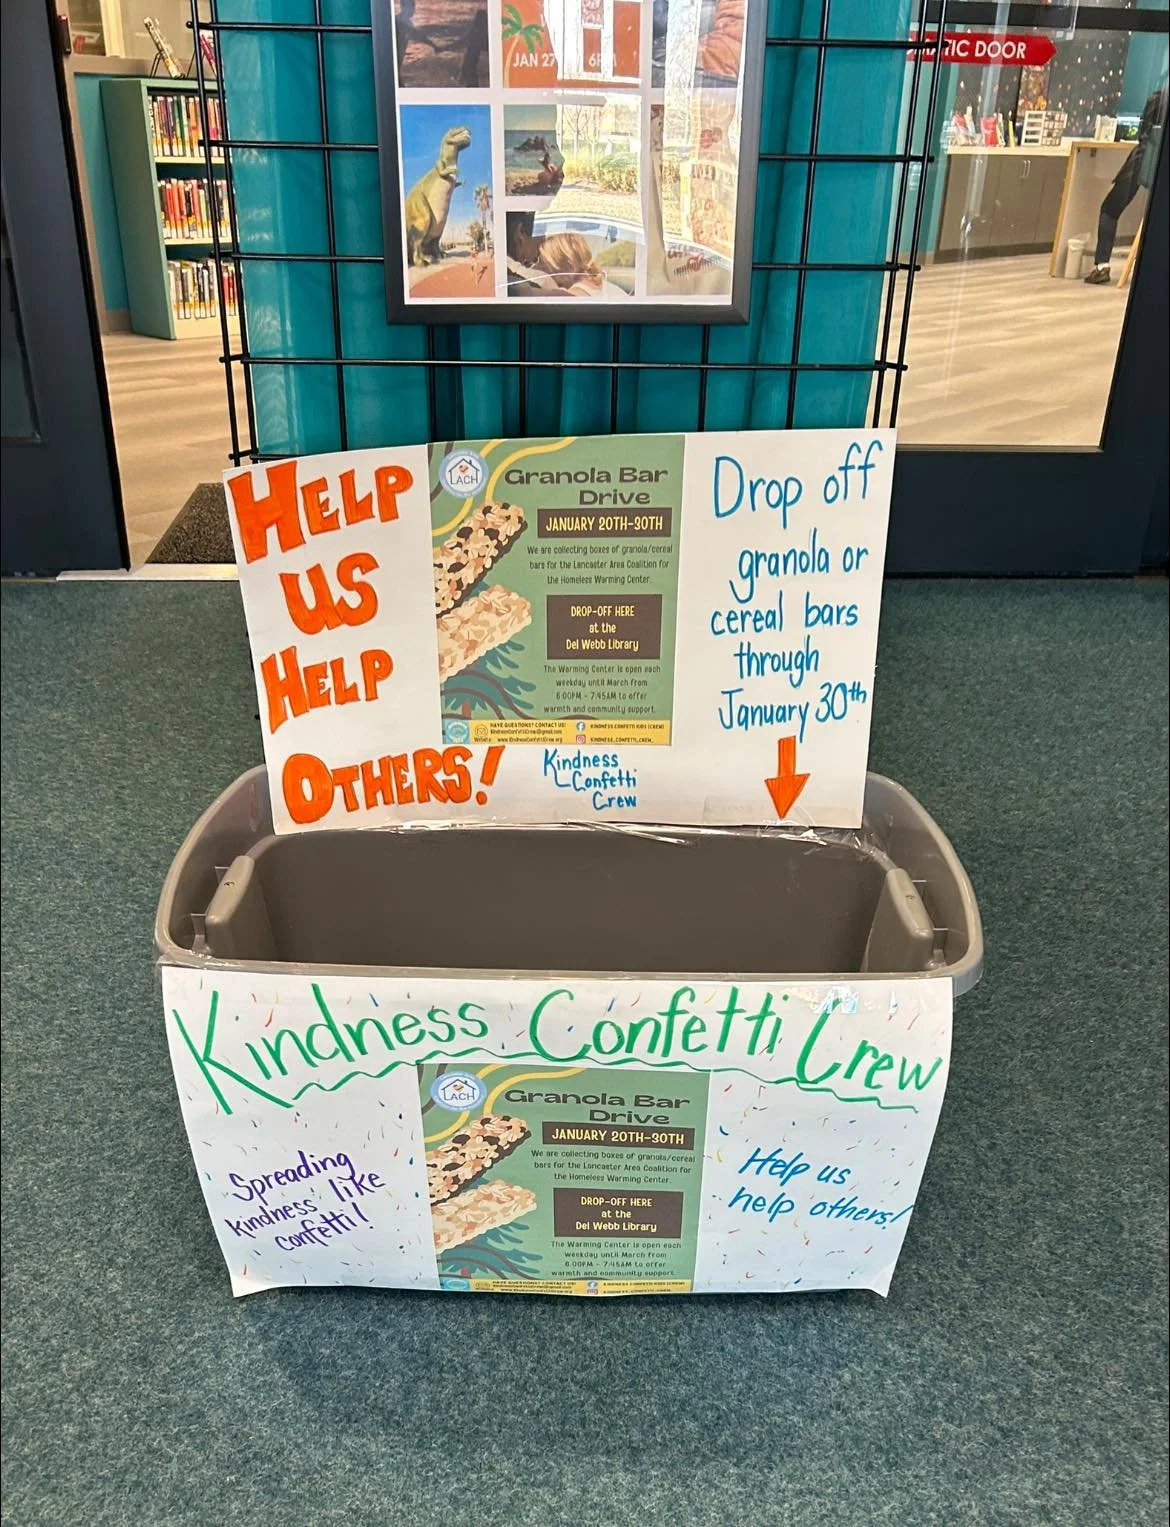 JAN 27
6P
ATIC DOOR
HELP
US
HELP
OTHERS!
LACH
Granola Bar
Drive
JANUARY 20TH-30TH
We are collecting boxes of granola/cereal
bars for the Lancaster Area Coalition for
the Homeless Warming Center.
DROP-OFF HERE
at the
Del Webb Library
The Warming Center is open each
weekday until March from
6:00PM - 7:45AM to offer
warmth and community support.
HAVE QUESTIONS? CONTACT US!
KindnessConfettiCrew@gmail.com
Website: www.KindnessConfettiCrew.org
KINDNESS CONFETTI KIDS (CREW)
KINDNESS_CONFETTI_CREW_
Kindness
Confetti
Crew
Drop off
granola or
cereal bars
through
January 30th
Kindness Confetti Crew
Spreading
kindness like
confetti!
LACH
Granola Bar
Drive
JANUARY 20TH-30TH
We are collecting boxes of granola/cereal
bars for the Lancaster Area Coalition for
the Homeless Warming Center.
DROP-OFF HERE
at the
Del Webb Library
The Warming Center is open each
weekday until March from
6:00PM - 7:45AM to offer
warmth and community support.
HAVE QUESTIONS? CONTACT US!
KindnessConfettiCrew@gmail.com
www.KindnessConfettiCrew.org
KINDNESS CONFETTI KIDS (CREW)
Help us
help others!